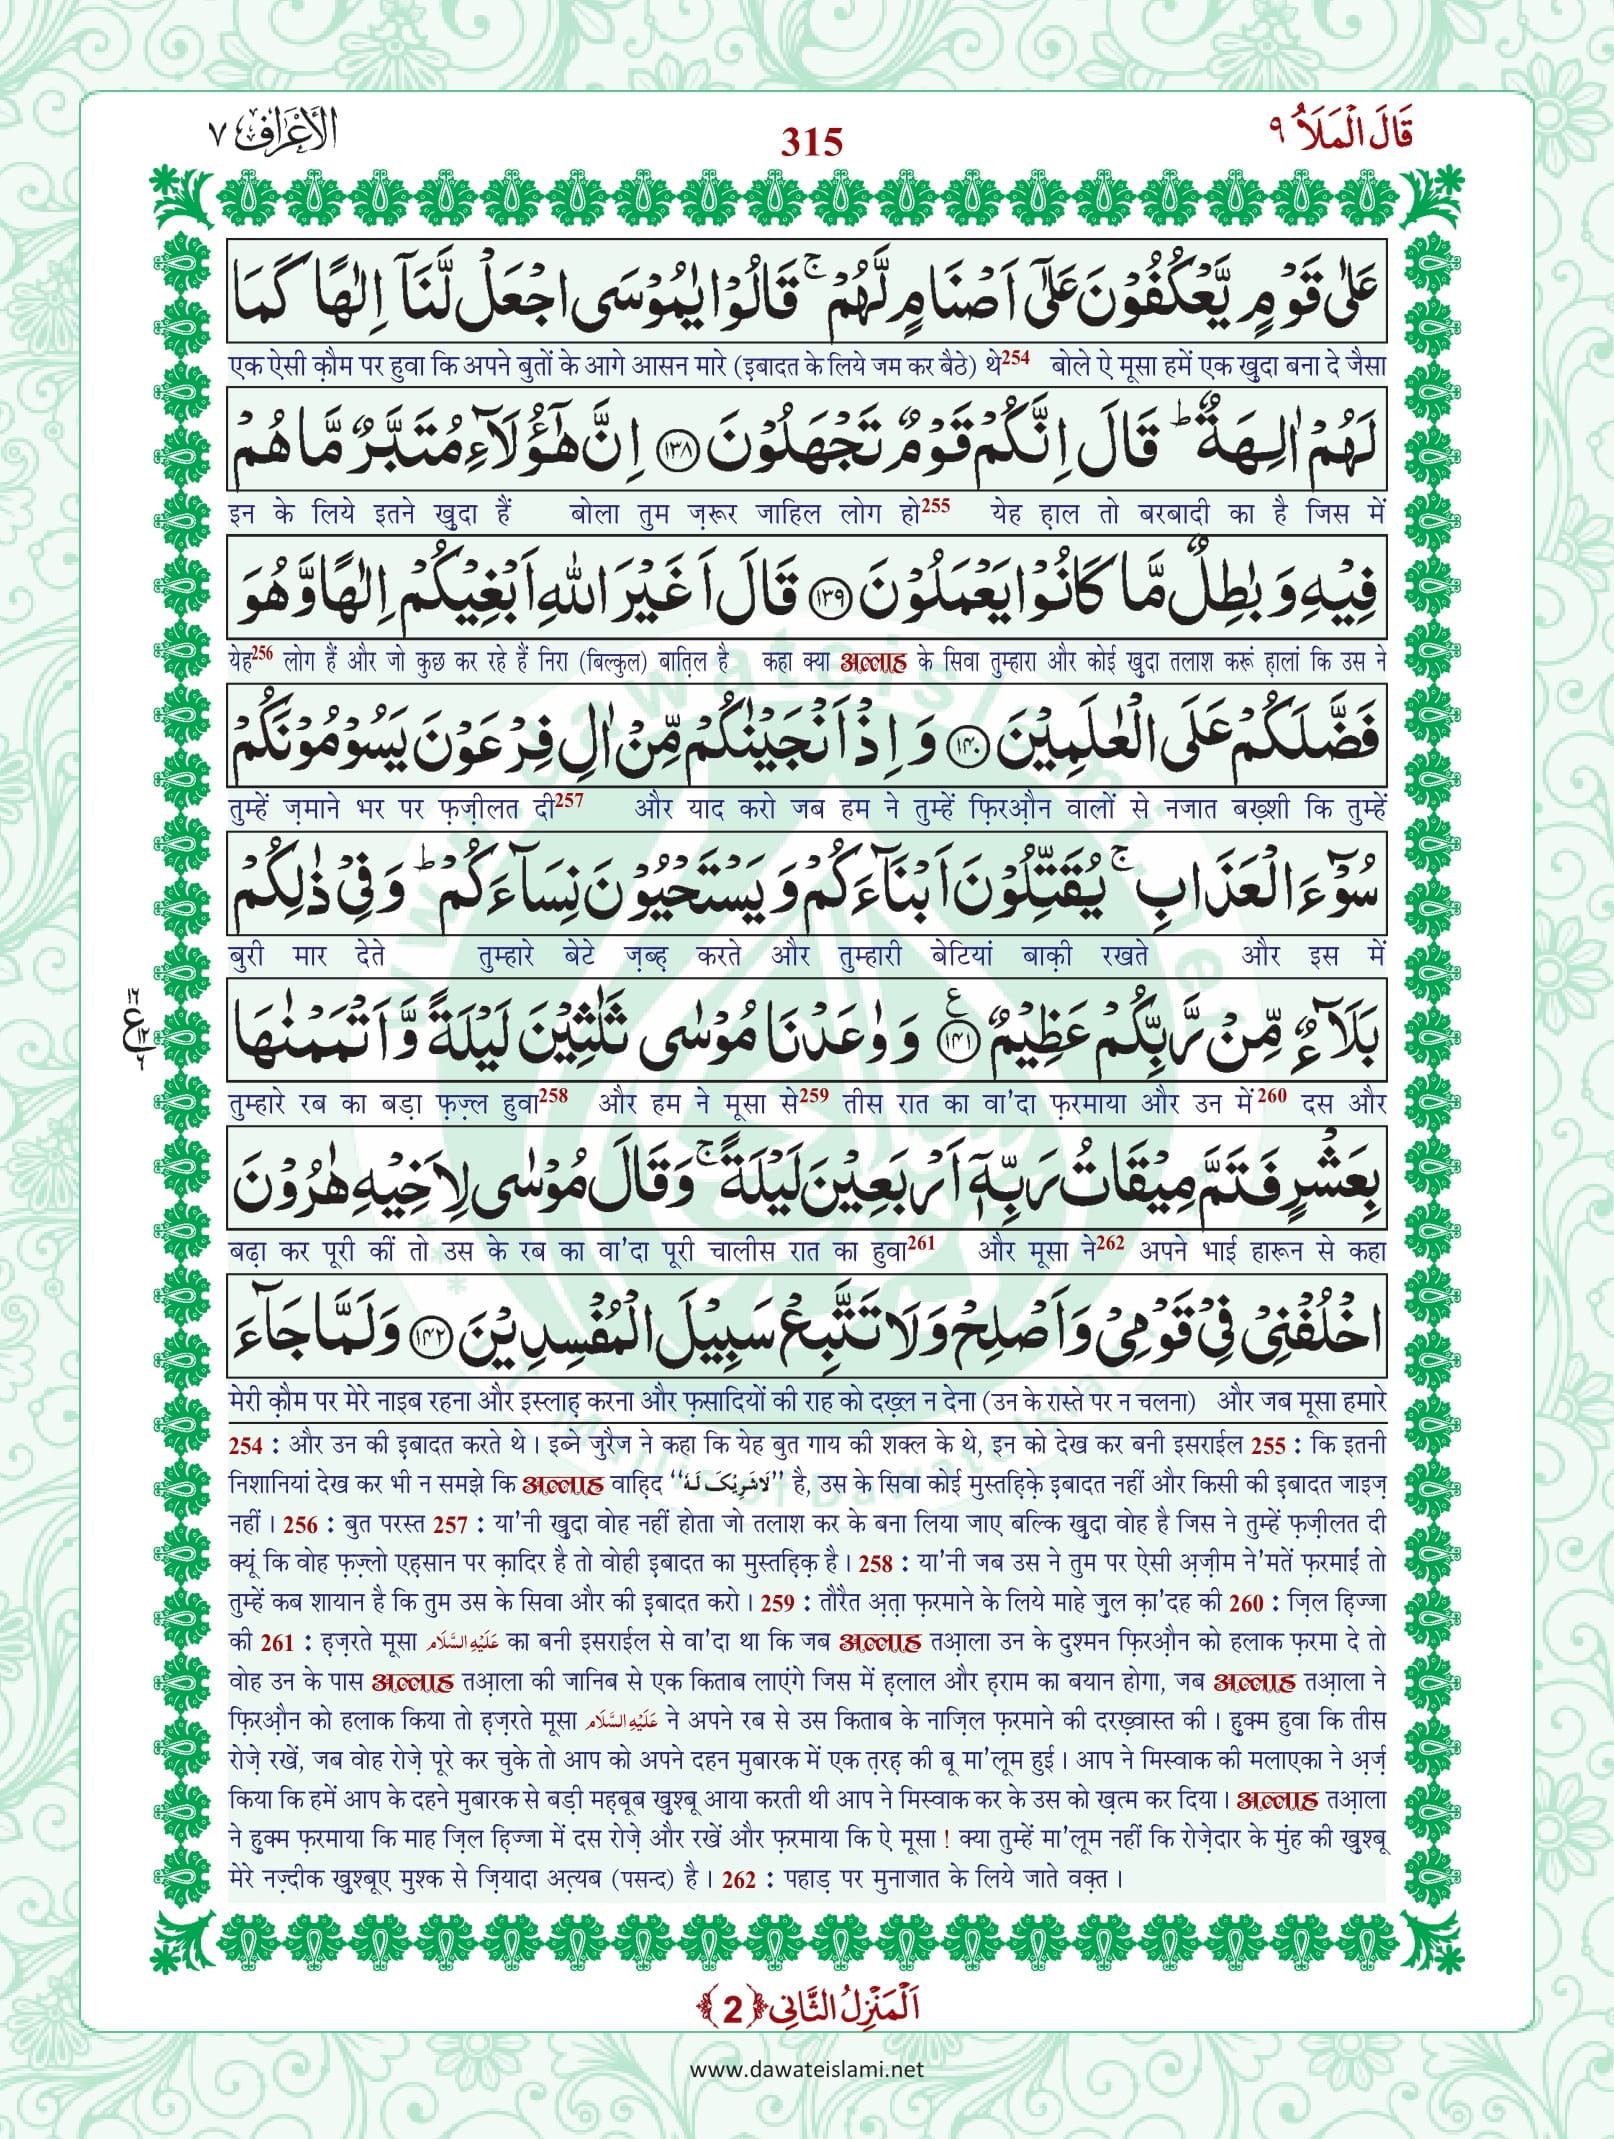 قَالَ الْمَلَاُ ٩
315
الْاَعْرَاف ٧
عَلٰى قَوْمٍ يَّعْكُفُوْنَ عَلٰۤى اَصْنَامٍ لَّهُمْ ۚ قَالُوْا يٰمُوْسَى اجْعَلْ لَّنَاۤ اِلٰهًا كَمَا
एक ऐसी क़ौम पर हुवा कि अपने बुतों के आगे आसन मारे (इबादत के लिये जम कर बैठे) थे254 बोले ऐ मूसा हमें एक ख़ुदा बना दे जैसा
لَهُمْ اٰلِهَةٌ ؕ قَالَ اِنَّكُمْ قَوْمٌ تَجْهَلُوْنَ ﴿١٣٨﴾ اِنَّ هٰۤؤُلَآءِ مُتَبَّرٌ مَّا هُمْ
इन के लिये इतने ख़ुदा हैं बोला तुम ज़रूर जाहिल लोग हो255 येह ह़ाल तो बरबादी का है जिस में
فِيْهِ وَ بٰطِلٌ مَّا كَانُوْا يَعْمَلُوْنَ ﴿١٣٩﴾ قَالَ اَغَيْرَ اللّٰهِ اَبْغِيْكُمْ اِلٰهًا وَّ هُوَ
येह256 लोग हैं और जो कुछ कर रहे हैं निरा (बिल्कुल) बात़िल है कहा क्या अल्लाह के सिवा तुम्हारा और कोई ख़ुदा तलाश करूं ह़ालां कि उस ने
فَضَّلَكُمْ عَلَى الْعٰلَمِيْنَ ﴿١٤٠﴾ وَ اِذْ اَنْجَيْنٰكُمْ مِّنْ اٰلِ فِرْعَوْنَ يَسُوْمُوْنَكُمْ
तुम्हें ज़माने भर पर फ़ज़ीलत दी257 और याद करो जब हम ने तुम्हें फ़िरऔ़न वालों से नजात बख़्शी कि तुम्हें
سُوْٓءَ الْعَذَابِ ۚ يُقَتِّلُوْنَ اَبْنَآءَكُمْ وَ يَسْتَحْيُوْنَ نِسَآءَكُمْ ؕ وَ فِيْ ذٰلِكُمْ
बुरी मार देते तुम्हारे बेटे ज़ब्ह़ करते और तुम्हारी बेटियां बाक़ी रखते और इस में
بَلَآءٌ مِّنْ رَّبِّكُمْ عَظِيْمٌ ﴿١٤١﴾ ع وَ وٰعَدْنَا مُوْسٰى ثَلٰثِيْنَ لَيْلَةً وَّ اَتْمَمْنٰهَا
١٦ ع ١٢ ٦
तुम्हारे रब का बड़ा फ़ज़्ल हुवा258 और हम ने मूसा से259 तीस रात का वा'दा फ़रमाया और उन में260 दस और
بِعَشْرٍ فَتَمَّ مِيْقَاتُ رَبِّهٖۤ اَرْبَعِيْنَ لَيْلَةً ۚ وَ قَالَ مُوْسٰى لِاَخِيْهِ هٰرُوْنَ
बढ़ा कर पूरी कीं तो उस के रब का वा'दा पूरी चालीस रात का हुवा261 और मूसा ने262 अपने भाई हारून से कहा
اخْلُفْنِيْ فِيْ قَوْمِيْ وَ اَصْلِحْ وَ لَا تَتَّبِعْ سَبِيْلَ الْمُفْسِدِيْنَ ﴿١٤٢﴾ وَ لَمَّا جَآءَ
मेरी क़ौम पर मेरे नाइब रहना और इस्लाह़ करना और फ़सादियों की राह को दख़्ल न देना (उन के रास्ते पर न चलना) और जब मूसा हमारे
254 : और उन की इबादत करते थे। इब्ने जुरैज ने कहा कि येह बुत गाय की शक्ल के थे, इन को देख कर बनी इसराईल 255 : कि इतनी
निशानियां देख कर भी न समझे कि अल्लाह वाह़िद "لَا شَرِيْكَ لَهٗ" है, उस के सिवा कोई मुस्तह़िक़े इबादत नहीं और किसी की इबादत जाइज़
नहीं। 256 : बुत परस्त 257 : या'नी ख़ुदा वोह नहीं होता जो तलाश कर के बना लिया जाए बल्कि ख़ुदा वोह है जिस ने तुम्हें फ़ज़ीलत दी
क्यूं कि वोह फ़ज़्लो एह़सान पर क़ादिर है तो वोही इबादत का मुस्तह़िक़ है। 258 : या'नी जब उस ने तुम पर ऐसी अ़ज़ीम ने'मतें फ़रमाईं तो
तुम्हें कब शायान है कि तुम उस के सिवा और की इबादत करो। 259 : तौरैत अ़त़ा फ़रमाने के लिये माहे ज़ुल क़ा'दह की 260 : ज़िल ह़िज्जा
की 261 : ह़ज़रते मूसा عَلَيْهِ السَّلَام का बनी इसराईल से वा'दा था कि जब अल्लाह तआ़ला उन के दुश्मन फ़िरऔ़न को हलाक फ़रमा दे तो
वोह उन के पास अल्लाह तआ़ला की जानिब से एक किताब लाएंगे जिस में ह़लाल और ह़राम का बयान होगा, जब अल्लाह तआ़ला ने
फ़िरऔ़न को हलाक किया तो ह़ज़रते मूसा عَلَيْهِ السَّلَام ने अपने रब से उस किताब के नाज़िल फ़रमाने की दरख़्वास्त की। हु़क्म हुवा कि तीस
रोज़े रखें, जब वोह रोज़े पूरे कर चुके तो आप को अपने दहन मुबारक में एक त़रह़ की बू मा'लूम हुई। आप ने मिस्वाक की मलाएका ने अ़र्ज़
किया कि हमें आप के दहने मुबारक से बड़ी मह़बूब ख़ुश्बू आया करती थी आप ने मिस्वाक कर के उस को ख़त्म कर दिया। अल्लाह तआ़ला
ने हु़क्म फ़रमाया कि माह ज़िल ह़िज्जा में दस रोज़े और रखें और फ़रमाया कि ऐ मूसा ! क्या तुम्हें मा'लूम नहीं कि रोज़ेदार के मुंह की ख़ुश्बू
मेरे नज़्दीक ख़ुश्बूए मुश्क से ज़ियादा अत़्यब (पसन्द) है। 262 : पहाड़ पर मुनाजात के लिये जाते वक़्त।
اَلْمَنْزِلُ الثَّانِي ﴿2﴾
www.dawateislami.net